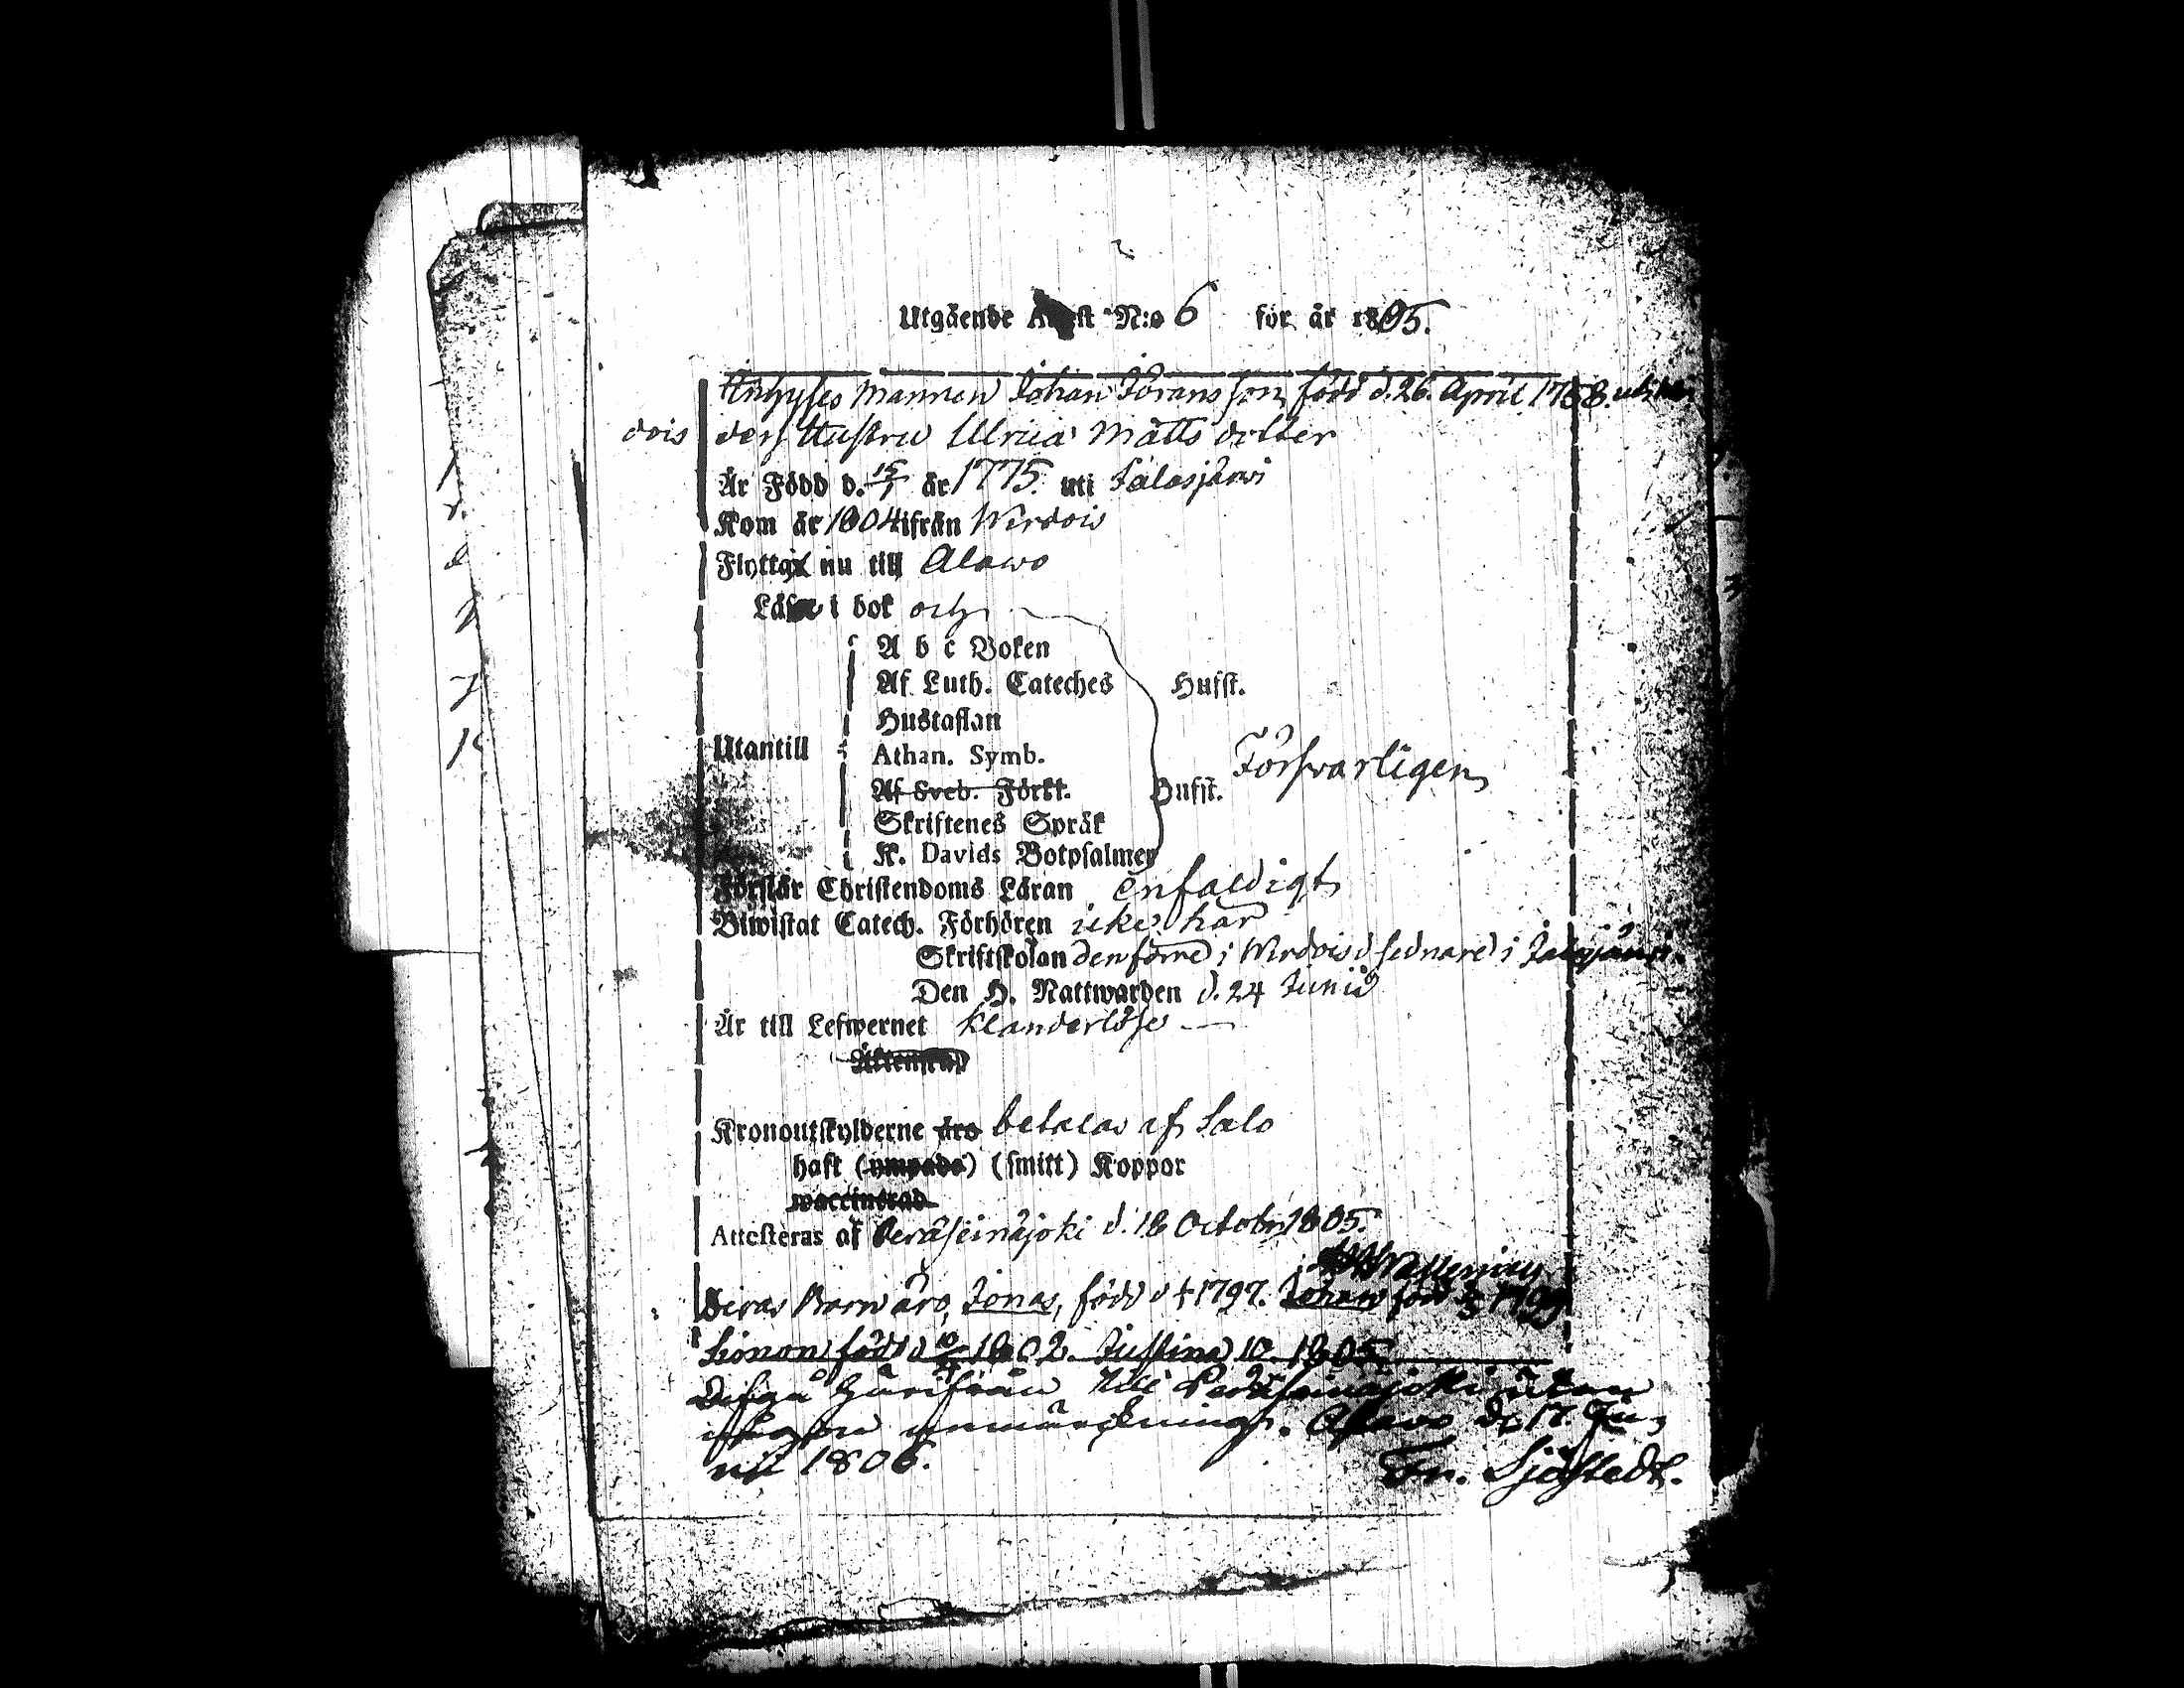 Utgående Attest N:o 6 för år 1805.
Inhyses Mannen Johan Göransson född d. 26. April 1768. uti Wir
dois des Hustru Ulrica Matts dotter
År Född d. 15/1 år 1775. uti Jalasjärwi
Kom år 1804 ifrån Wirdois
Flyttar nu till Alawo
Läsa i bok och
A b c Boken
Af Luth. Cateches Hufst.
Hustaflan
Utantill Athan. Symb. Försvarligen
Af Sveb. Förkl. Hufst.
Skriftenes Språk
K. Davids Botpsalmer
Förstår Christendoms Läran enfaldigt
Biwistat Catech. Förhören icke här
Skriftskolan den förre i Wirdois d sednare i Jalasjärwi.
Den H. Nattwarden d. 24 Junii
År till Lefwernet klanderlöse
Äktenskap
Kronoutskylderne äro betalas af Salo
haft (ympade) (smitt) Koppor
waccinerad
Attesteras af Peräseinäjoki d. 18 Octobr 1805.
Deras Barn äro, Jonas, född d 1797. Johan född 1799
Simon född d 1802. Justina 1805
härifrån till Peräseinäjoki utan
anmärkning. Alawo d. 17. Ju-
nii 1806.
Fr. Sjöstedt.